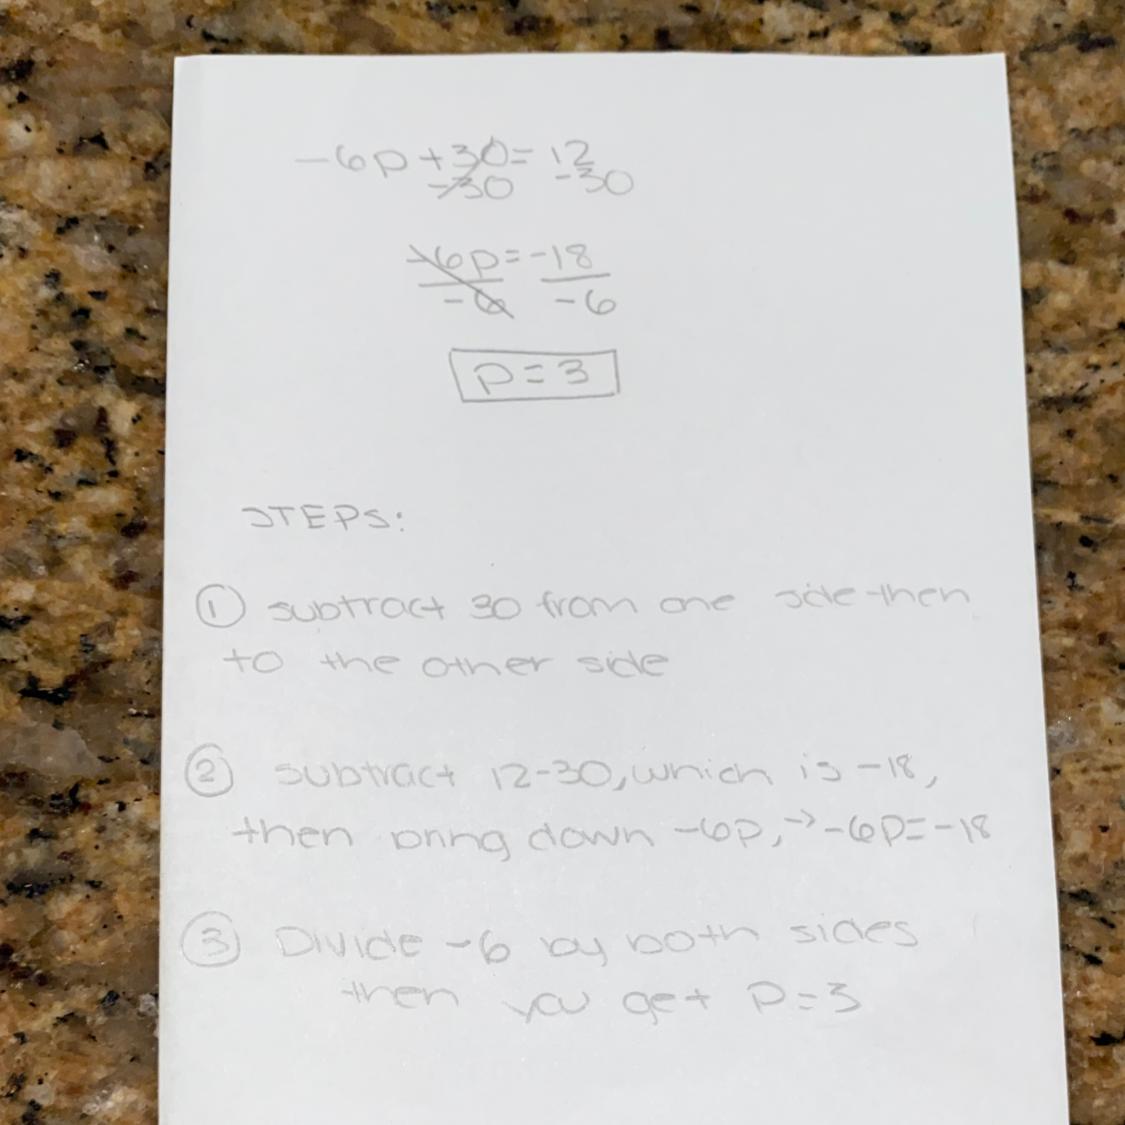 -6p+30=12
-30 -30
-6p=-18
-6 -6
p=3
STEPS:
① subtract 30 from one side then
to the other side
② subtract 12-30, which is -18,
then bring down -6p, → -6p=-18
③ Divide -6 by both sides
then you get p=3